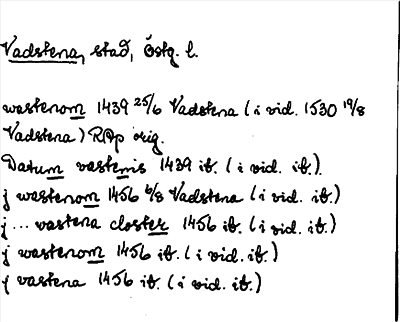 Vadstena, stad, Östg. l.
wastenom 1439 25/6 Vadstena (i vid. 1530 19/8
Vadstena) RAp orig.
Datum vastenis 1439 ib. (i vid. ib.).
j wastenom 1456 6/8 Vadstena (i vid. ib.)
j ... vastena closter 1456 ib. (i vid. ib.)
j wastenom 1456 ib. (i vid. ib.)
j vastena 1456 ib. (i vid. ib.)